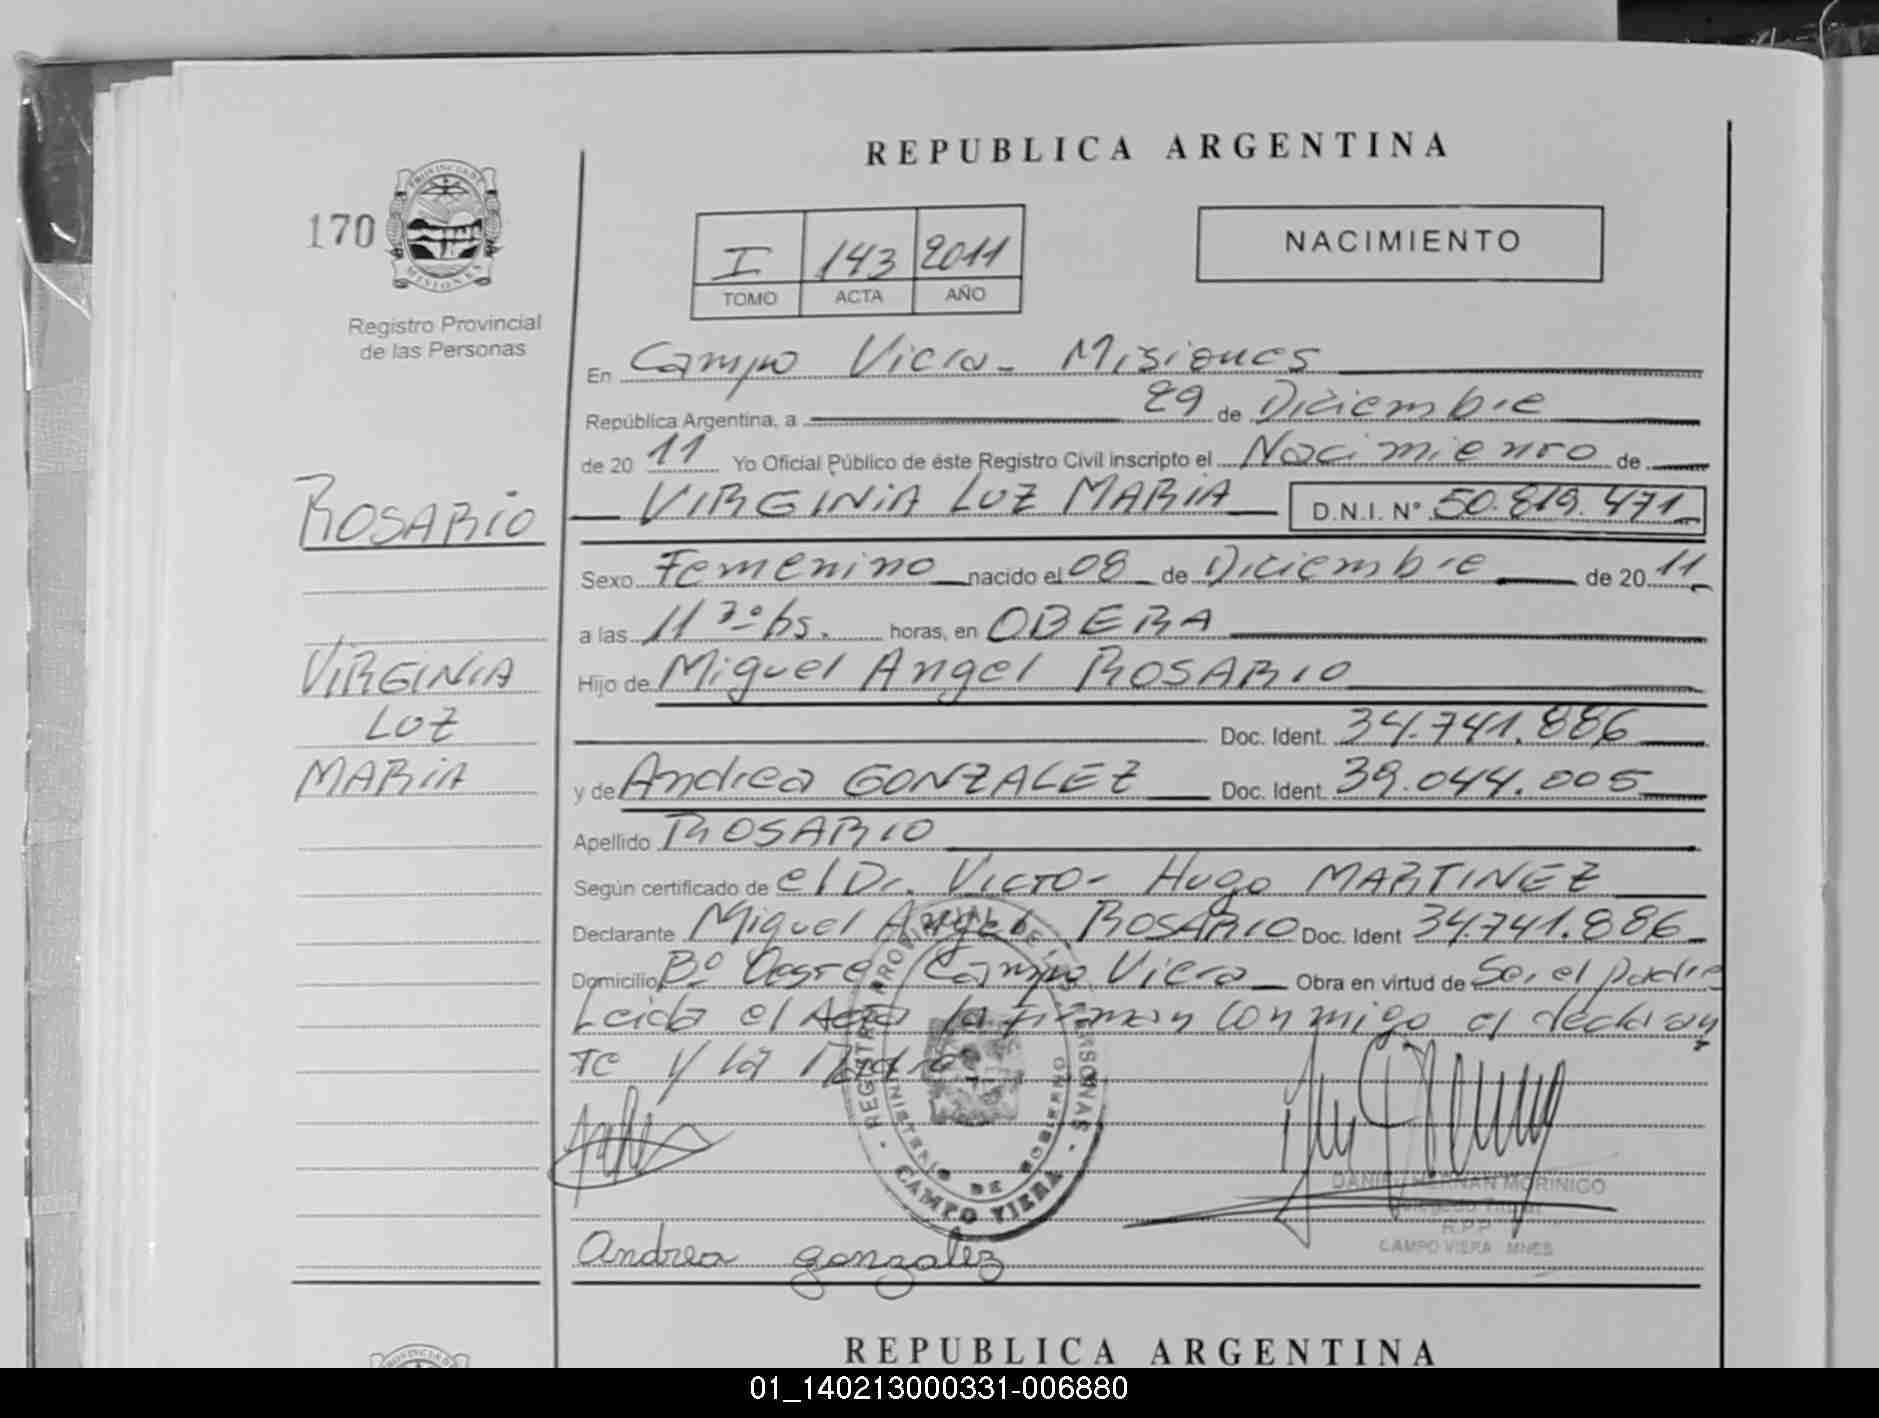 REPUBLICA ARGENTINA
170
PROVINCIA DE MISIONES
Registro Provincial
de las Personas
I 143 2011
TOMO ACTA AÑO
NACIMIENTO
En Campo Viera - Misiones
República Argentina, a 29 de Diciembre
de 20 11 Yo Oficial Público de éste Registro Civil inscripto el Nacimiento de
ROSARIO
VIRGINIA LUZ MARIA D.N.I. N° 50.819.471
Sexo Femenino nacido el 08 de Diciembre de 20 11
a las 11 30 hs. horas, en OBERA
VIRGINIA
LUZ
MARIA
Hijo de Miguel Angel ROSARIO
Doc. Ident. 34.741.886
y de Andrea GONZALEZ Doc. Ident. 39.044.005
Apellido ROSARIO
Según certificado de el Dr. Victor Hugo MARTINEZ
Declarante Miguel Angel ROSARIO Doc. Ident 34.741.886
Domicilio Bº Oeste Campo Viera Obra en virtud de Ser el padre
Leida el Acta la firman conmigo el declaran
te y la Madre
REGISTRO PROVINCIAL DE LAS PERSONAS
MINISTERIO DE GOBIERNO
CAMPO VIERA
DANIEL HERNAN MORINIGO
Delegado Titular
R.P.P.
CAMPO VIERA MNES
Andrea gonzalez
REPUBLICA ARGENTINA
PROVINCIA DE
01_140213000331-006880